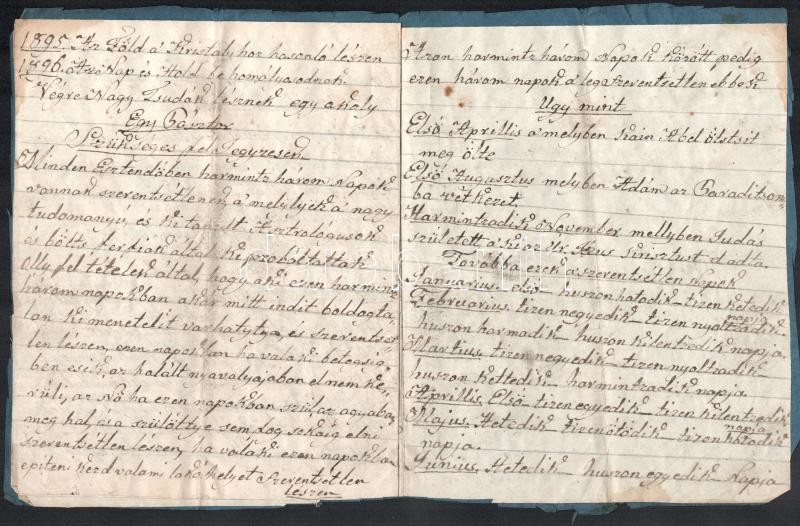 1895. Az Föld a Kristalyhoz hasonló lészen
1896. Az Nap és Hold be homalyosodnak
Vegre Nagy Tsudák lésznek egy akoly
Egy Pásztor
Szükséges fel Jegyzesek
Minden Esztendőben harmintz három Napok
vannak szerentsétlenek a mélylyek a nagy
tudomanyu, és ki tanult Astrologusok
és bölts ferfiak által ki probóltattak
olly fel tételek által, hogy a ki ezen harmintz
három napokban akár mitt indit boldogta-
lan ki menetelit várhatytya, és szerentsét-
len leszen, ezen napokban ha valaki betegsig-
ben esik az halált nyavalyajában el nem ke-
rüli, az Nő ha ezen napokban szül az agyában
meg hal, és a szülöttye sem fog sokáig elni
szerentsetlen lészen, ha valaki ezen napokban
epiteni kezd valami lakó helyet szerentsetlen
leszen
Azon harmintz három Napok között pedig
ezen három napok a leg szerentsetlenebbek
Ugy mint
Első Aprillis a melyben Kain Abel ötstsit
meg ölte
Első Augusztus melyben Adám az Paraditsom-
ba vétkezet
Harmintzadik November mellyben Judás
született a ki az Ur Jesus Krisztust el adta
Továbba ezek a szerentsétlen Napok
Januarius első - huszon hatodik - tizen hetedik
napja
Februarius, tizen negyedik - tizen nyoltzadik
huszon harmadik - huszon kilentzedik napja.
Martius, tizen negyedik - tizen nyoltzadik
huszon kettedik - harmintzadik napja
Aprillis, Első - tizen egyedik - tizen kilentzedik
napja
Majus, Hetedik - tizen ötödik - tizen hatodik
napja.
Junius, Hetedik - huszon egyedik Napja